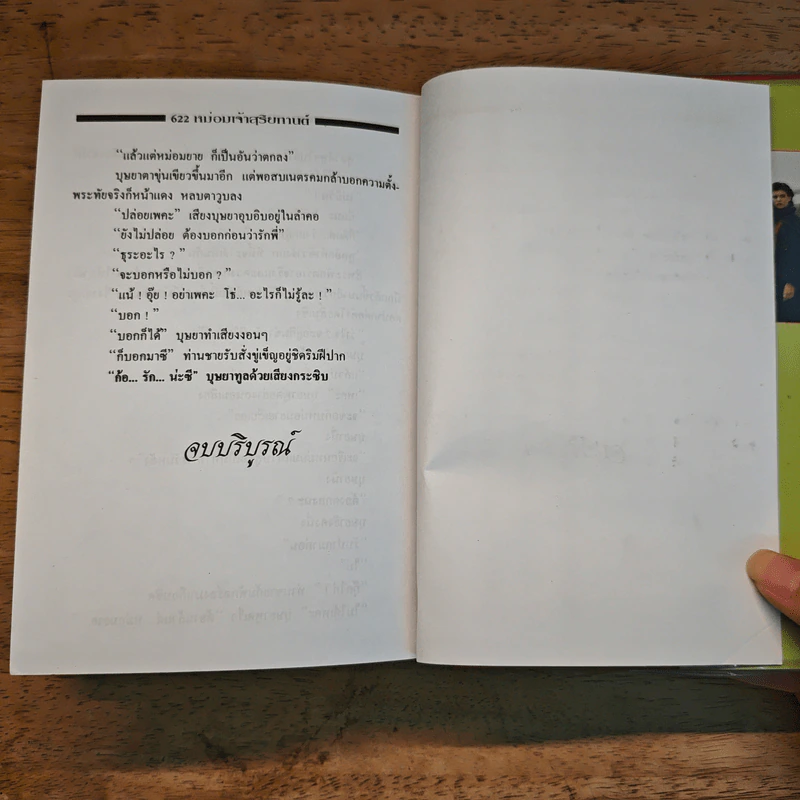 622 หม่อมเจ้าสุริยกานต์
“แล้วแต่หม่อมยาย ก็เป็นอันว่าตกลง”
บุษยาตาขุ่นเขียวขึ้นมาอีก แต่พอสบเนตรคมกล้าบอกความตั้ง-
พระทัยจริงก็หน้าแดง หลบตาวูบลง
“ปล่อยเพคะ” เสียงบุษยาอุบอิบอยู่ในลำคอ
“ยังไม่ปล่อย ต้องบอกก่อนว่ารักพี่”
“ธุระอะไร ? ”
“จะบอกหรือไม่บอก ? ”
“แน้ ! อุ๊ย ! อย่าเพคะ โธ่... อะไรก็ไม่รู้ละ ! ”
“บอก ! ”
“บอกก็ได้” บุษยาทำเสียงงอนๆ
“ก็บอกมาซี” ท่านชายรับสั่งขู่เข็ญอยู่ชิดริมฝีปาก
“ก้อ... รัก... น่ะซี” บุษยาทูลด้วยเสียงกระซิบ
จบบริบูรณ์